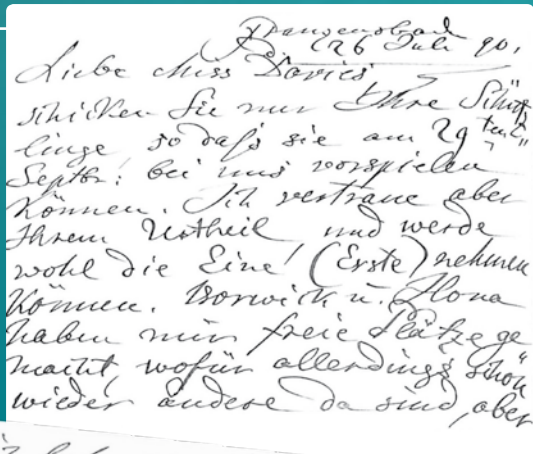 Franzensbad
26 Juli 90.
Liebe Miss Davies
schicken Sie nur Ihre Schütz
linge, so daß sie am 29ten
Septbr: bei uns vorspielen
können. Ich vertraue aber
Ihrem Urtheil, und werde
wohl die Eine (Erste) nehmen
können. Borwick u. Ilona
haben mir freie Plätze ge
macht, wofür allerdings schon
wieder andere da sind, aber